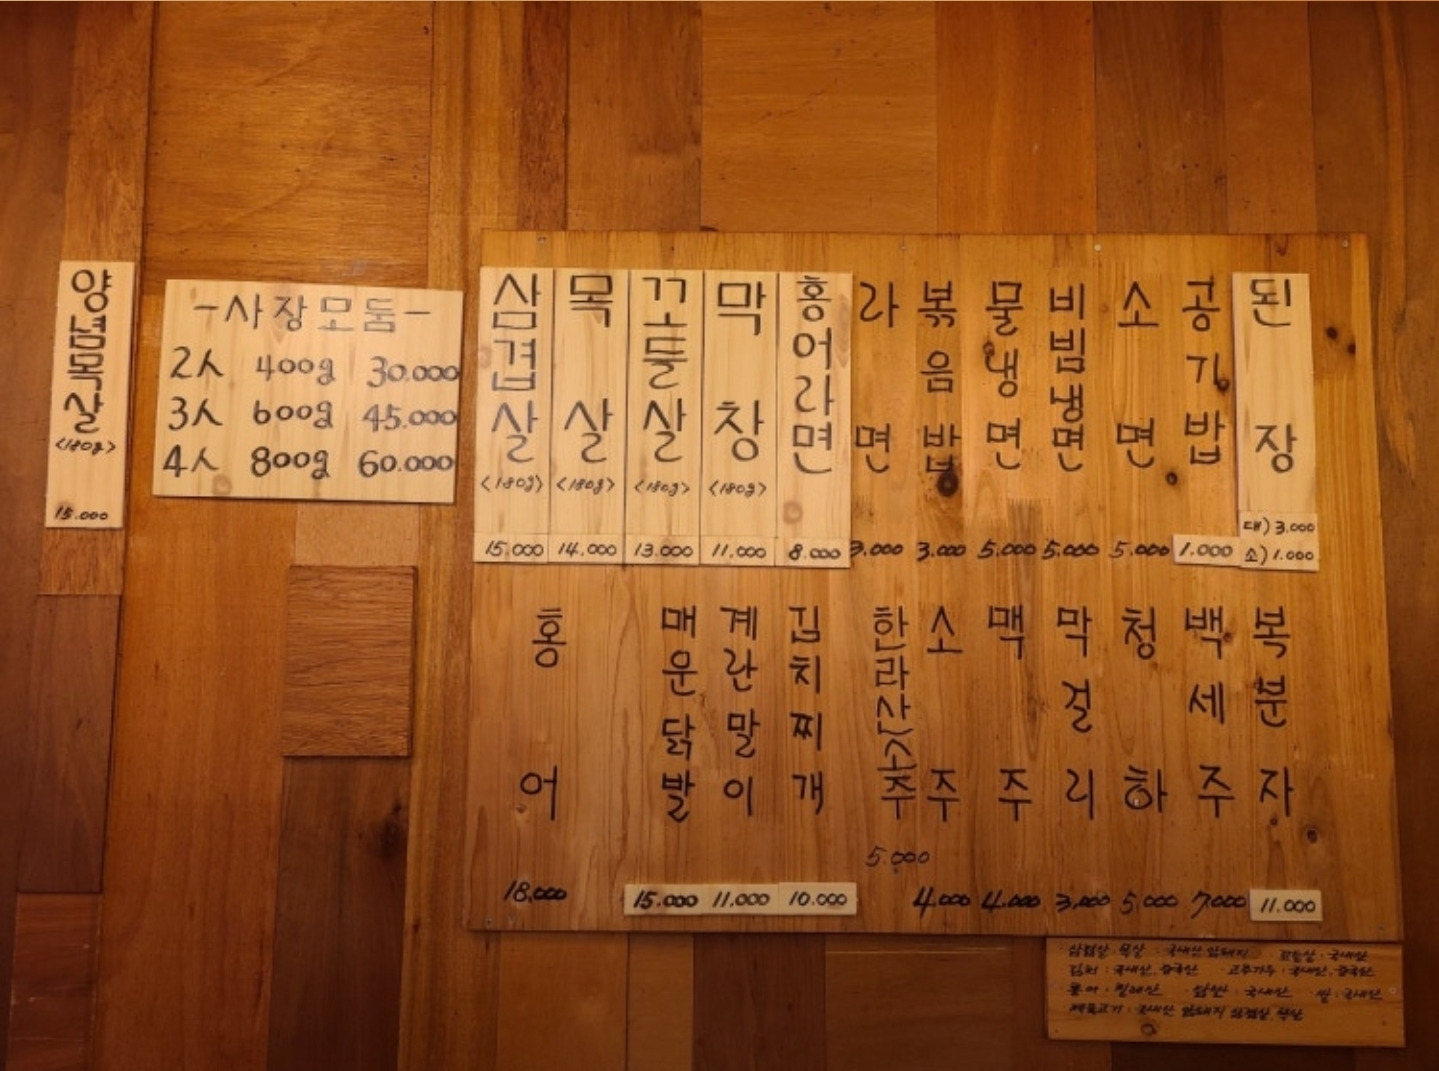 양념목살
<180g>
15.000
-사장모둠-
2人 400g 30.000
3人 600g 45.000
4人 800g 60.000
삼겹살
<180g>
15.000
목살
<180g>
14.000
꼬들살
<180g>
13.000
막창
<180g>
11.000
홍어라면
8.000
라면
3.000
볶음밥
3.000
물냉면
5.000
비빔냉면
5.000
소면
5.000
공기밥
1.000
된장
대) 3.000
소) 1.000
홍어
18.000
매운닭발
15.000
계란말이
11.000
김치찌개
10.000
한라산소주
5.000
소주
4.000
맥주
4.000
막걸리
3.000
청하
5.000
백세주
7.000
복분자
11.000
·삼겹살.목살 : 국내산 암돼지 꼬들살 · 국내산
·김치 : 국내산.중국산 · 고추가루 · 국내산.중국산
홍어 · 칠레산 · 국내산 · 쌀 · 국내산
국내산 암돼지 삼겹살.목살